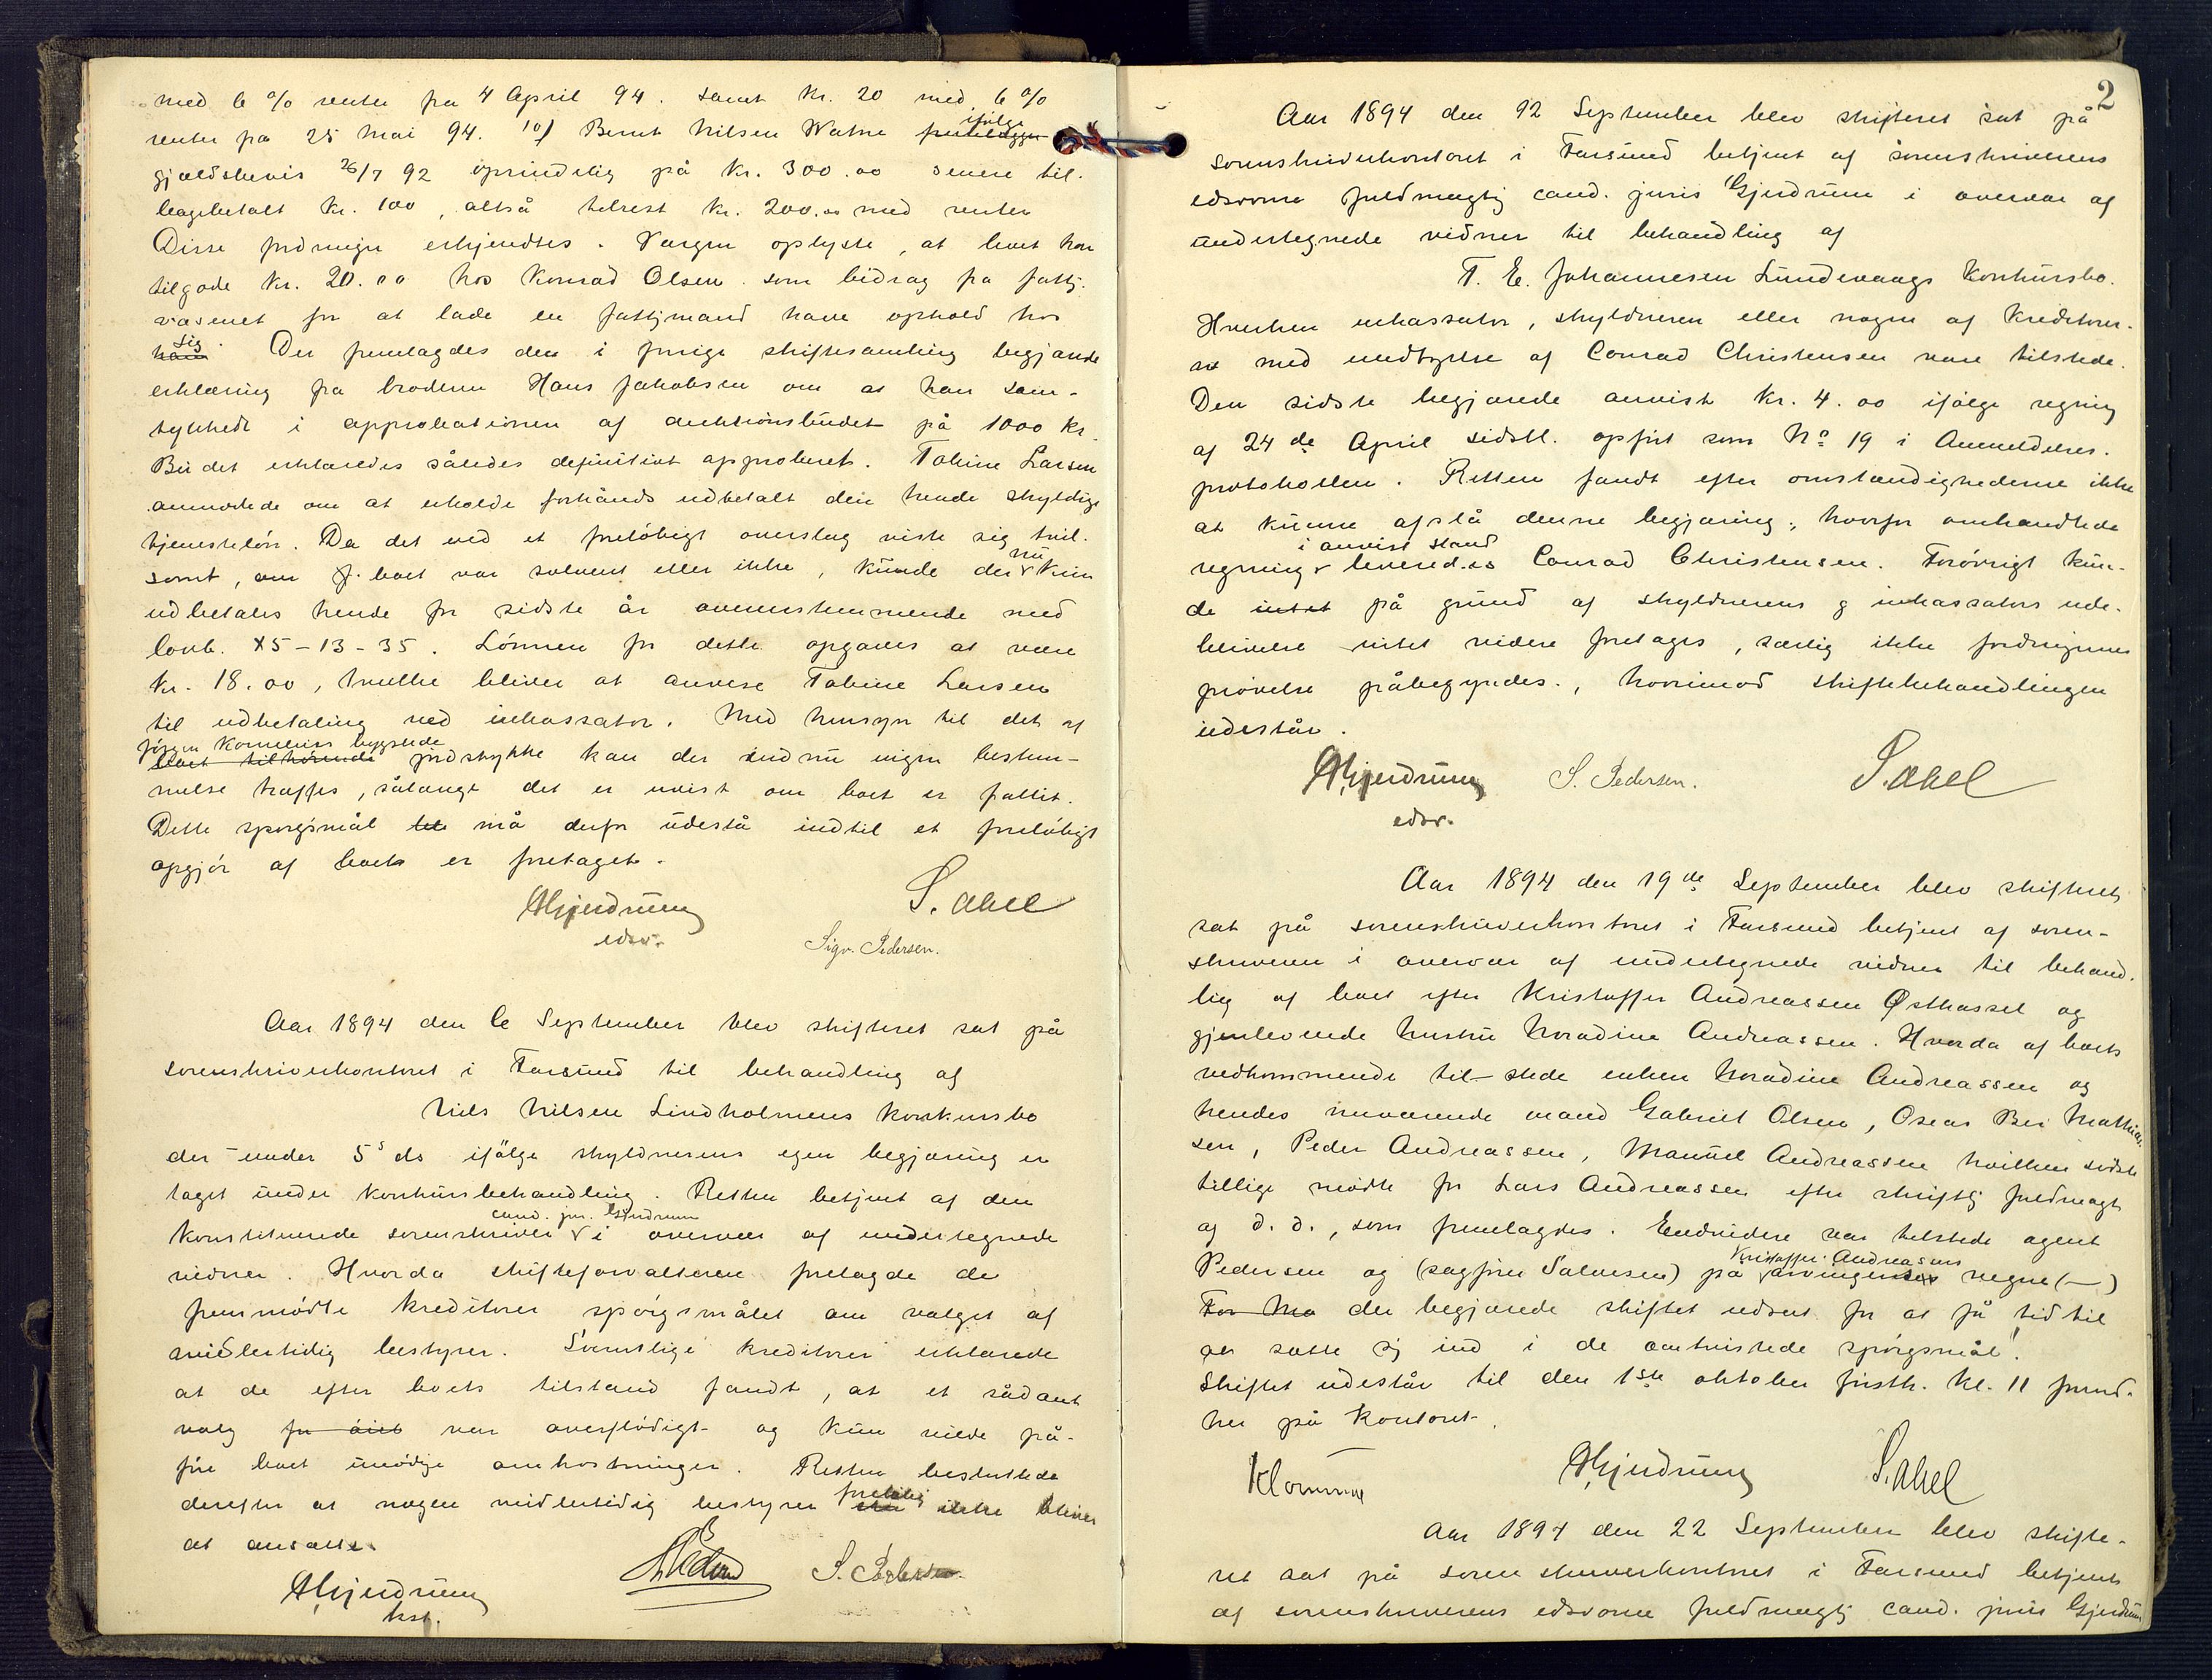 med 6 % renter fra 4 April 94. samt Kr. 20 med 6 %
renter fra 25 Mai 94. 10) Bernt Nilsen Watne ifølge
gjældsbevis 26/7 92 oprindelig på Kr. 300.00 senere til-
bagebetalt Kr. 100, altså tilrest Kr. 200.00 med renter
Disse fordringer erkjendtes. Vergen oplyste, at boet har
tilgode Kr. 20.00 hos Konrad Olsen som bidrag fra fattig-
væsenet for at lade en fattigmand have ophold hos
sig. Der fremlagdes den i forrige skiftesamling begjærede
erklæring fra broderen Hans Jakobsen om at han sam-
tykkede i approbationen af auktionsbudet på 1000 kr.
Budet erklæredes således definitivt approberet. Tobine Larsen
anmodede om at erholde forhånds udbetalt den hende skyldige
tjenesteløn. Da det ved et foreløbigt overslag viste sig tvil-
somt, om boet var solvent eller ikke, kunde der nu kun
udbetales hende for sidste år overensstemmende med
lovb. X5-13-35. Lønnen for dette opgaves at være
Kr. 18.00, hvilke bliver at anvise Tobine Larsen
til udbetaling ved inkassator. Med hensyn til det af
Jørgen Kornelius bygslede
boet tilhørende jordstykke kan der endnu ingen bestem-
melse træffes, sålænge det er uvist om boet er fallit.
Dette spørgsmål må derfor udestå indtil et foreløbigt
opgjør af boet er foretaget.
AGjerdrum S. Abel
edsv. Sigv. Pedersen.
Aar 1894 den 6 September blev skifteret sat på
sorenskriverkontoret i Farsund til behandling af
Niels Nilsen Lindholmens konkursbo
der under 5s ds ifølge skyldnerens egen begjæring er
taget under konkursbehandling. Retten betjent af den
cand. jur. Gjerdrum
konstituerede sorenskriver i overvær af undertegnede
vidner. Hvorda skifteforvalteren forelagde de
fremmødte kreditorer spørgsmålet om valget af
midlertidig bestyrer. Samtlige kreditorer erklærede
at de efter boets tilstand fandt, at et sådant
valg var overflødigt og kun vilde på-
føre boet unødige omkostninger. Retten besluttede
derefter at nogen midlertidig bestyrer foreløbig ikke bliver
at ansætte.
AGjerdrum S. Pedersen.
kst.
2
Aar 1894 den 12 September blev skifteret sat på
sorenskriverkontoret i Farsund betjent af sorenskriverens
edsvorne fuldmægtig cand. juris Gjerdrum i overvær af
undertegnede vidner til behandling af
T. E. Johannesen Lundevaags Konkursbo.
Hverken inkassator, skyldneren eller nogen af kreditorer-
ne med undtagelse af Conrad Christensen vare tilstede.
Den sidste begjærede anvist Kr. 4.00 ifølge regning
af 24de April sidstl. opført som No 19 i Anmeldelses-
protokollen. Retten fandt efter omstændighederne ikke
at kunne afslå denne begjæring, hvorfor omhandlede
i anvist stand
regning leveredes Conrad Christensen. Forøvrigt kun-
de intet på grund af skyldnerens og inkassators ude-
blivelse intet videre foretages, særlig ikke fordringernes
prøvelse påbegyndes, hvorimod skiftebehandlingen
udestår.
AGjerdrum S. Pedersen. S. Abel
edsv.
Aar 1894 den 19de September blev skifteret
sat på sorenskriverkontoret i Farsund betjent af soren-
skriveren i overvær af undertegnede vidner til behand-
ling af boet efter Kristoffer Andreassen Østhassel og
gjenlevende hustru Noradine Andreassen. Hvorda af boets
vedkommende tilstede enken Noradine Andreassen og
hendes nuværende mand Gabriel Olsen, Oscar Bei Mathias-
sen, Peder Andreassen, Manuel Andreassen hvilken sidste
tillige mødte for Lars Andreassen efter skriftlig fuldmagt
af d. d., som fremlagdes. Endvidere var tilstede agent
Kristoffer Andreasens
Pedersen og (sagfører Salvesen) på arvingers vegne (—)
For Ma der begjærede skiftet udsat for at få tid til
at sætte sig ind i de omtvistede spørgsmål.
Skiftet udestår til den 1ste oktober førstk. Kl. 11 formd.
her på Kontoret.
Klomme AGjerdrum S. Abel
Aar 1894 den 22 September blev skifte-
ret sat på sorenskriverkontoret i Farsund betjent
af sorenskriverens edsvorne fuldmægtig cand. juris Gjerdrum